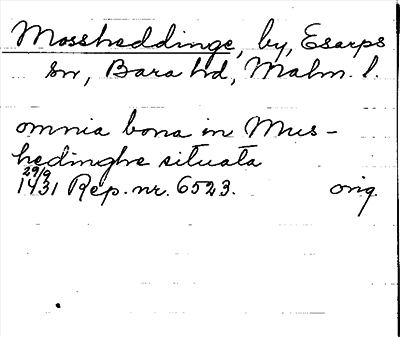 Mossheddinge, by, Esarps
sn, Bara hd, Malm. l.
omnia bona in Mus-
hedinghe situata
29/9
1431 Rep. nr. 6523. orig.